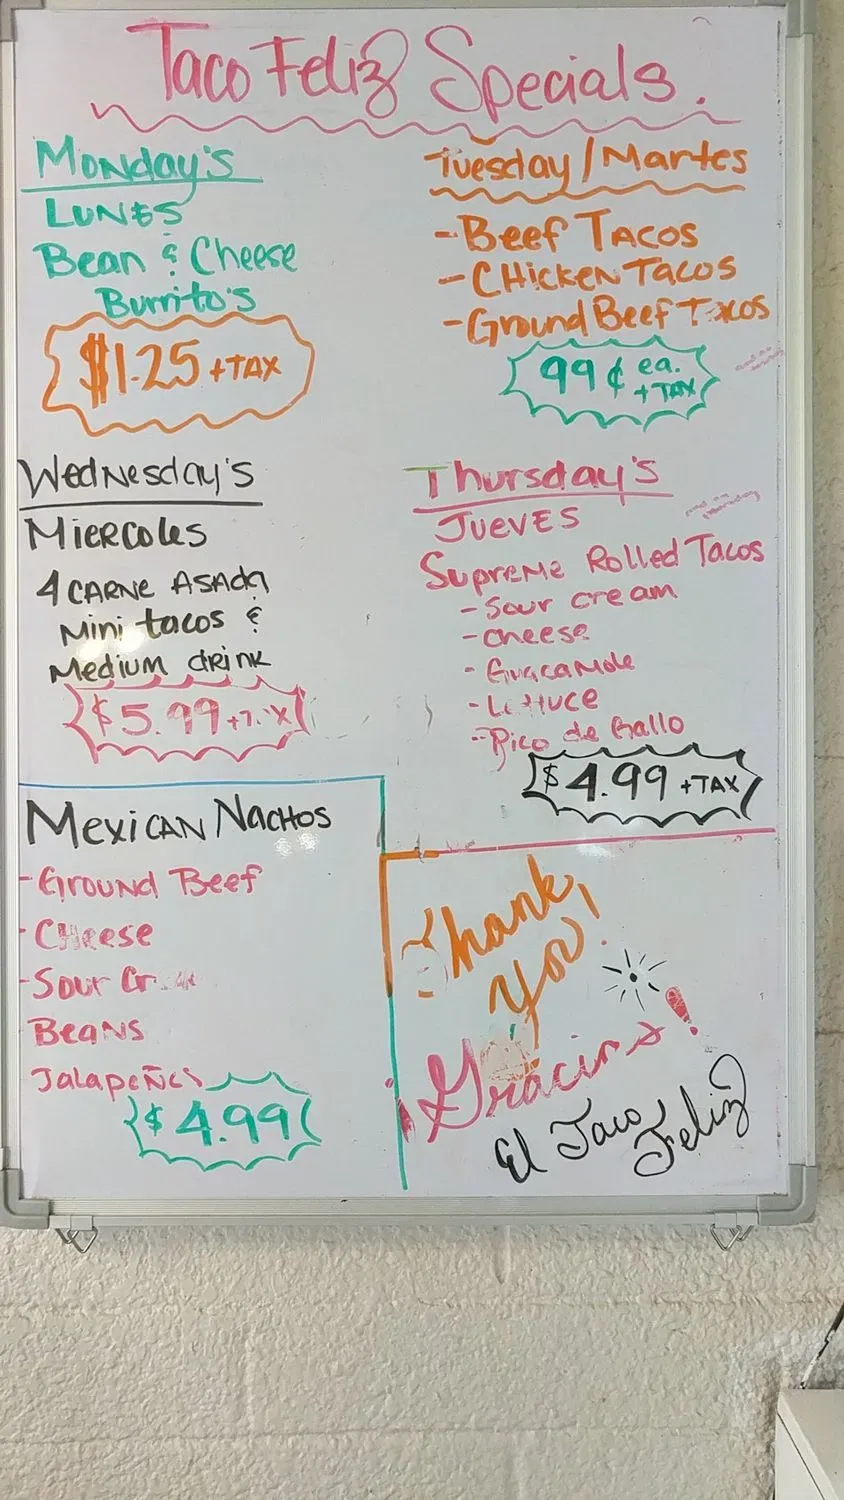 Taco Feliz Specials.
Monday's
LUNES
Bean & Cheese
Burrito's
$1.25 + TAX
Tuesday / Martes
- Beef TACOS
- CHicken TACOS
- Ground Beef Tacos
99¢ ea.
+ TAX
Wednesday's
MiERColes
4 CARNE ASAda
Mini tacos &
Medium drink
$5.99 + TAX
Thursday's
JUEVES
Supreme Rolled Tacos
- Sour cream
- cheese
- Guacamole
- Lettuce
- Pico de Gallo
$4.99 + TAX
Mexican Nachos
- Ground Beef
- Cheese
- Sour
Beans
Jalapeños
$4.99
Thank
You!
Gracias!
El Taco
Feliz